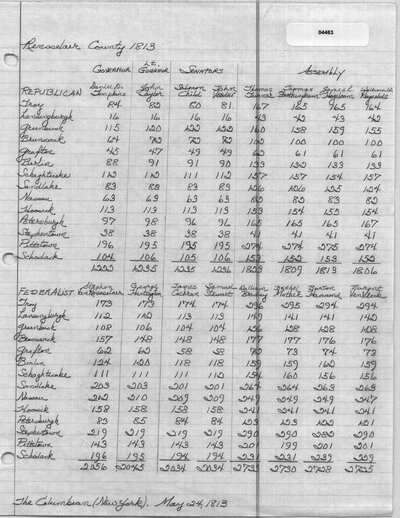 04463
Rensselaer County 1813
GOVERNOR LT. GOVERNOR SENATORS ASSEMBLY
REPUBLICAN Daniel D. Tompkins John Tayler John Thomas
Troy 84 82 80 81 167 165 165 164
Lansingburgh 16 16 16 16 43 42 43 42
Greenbush 115 120 160 158 159 155
Brunswick 64 72 72 72 100 100 100
Grafton 45 47 49 49 61 61 61
Berlin 88 91 91 90 133 132 133 133
Schaghticoke 112 112 111 112 157 157 154 157
Sandlake 83 83 83 83 126 126 125 124
Nassau 63 63 63 63 82 83 82
Hoosick 113 113 113 113 153 154 155 154
Petersburgh 97 98 96 96 165 165 165 167
Stephentown 38 38 38 38 41 41 41 41
Pittstown 196 195 195 195 274 274 275 274
Schodack 104 106 105 106 153 152 153 152
1235 1235 1236 1809 1806
FEDERALIST Stephen Van Rensselaer George Huntington James Cochran Samuel Stewart
Troy 173 173 174 174 295 294 294
Lansingburgh 112 112 113 113 149 141 141 142
Greenbush 108 106 104 104 126 128 128 128
Brunswick 157 148 148 148 177 177 176 176
Grafton 62 62 58 58 73 74 73
Berlin 124 120 118 118 159 159 162 159
Schaghticoke 111 111 111 112 154 160 156 156
Sandlake 203 203 201 201 264 264 263 263
Nassau 212 210 209 209 249 249 249 247
Hoosick 158 158 158 158 241 241 241 241
Petersburgh 83 85 84 84 123 123 122 121
Stephentown 219 219 219 219 290 290 282 290
Pittstown 143 143 143 143 201 199 201 201
Schodack 196 195 194 194 231 231 239
2045 2034 2034 2735 2730 2728 2725
The Columbian (New York). May 24, 1813